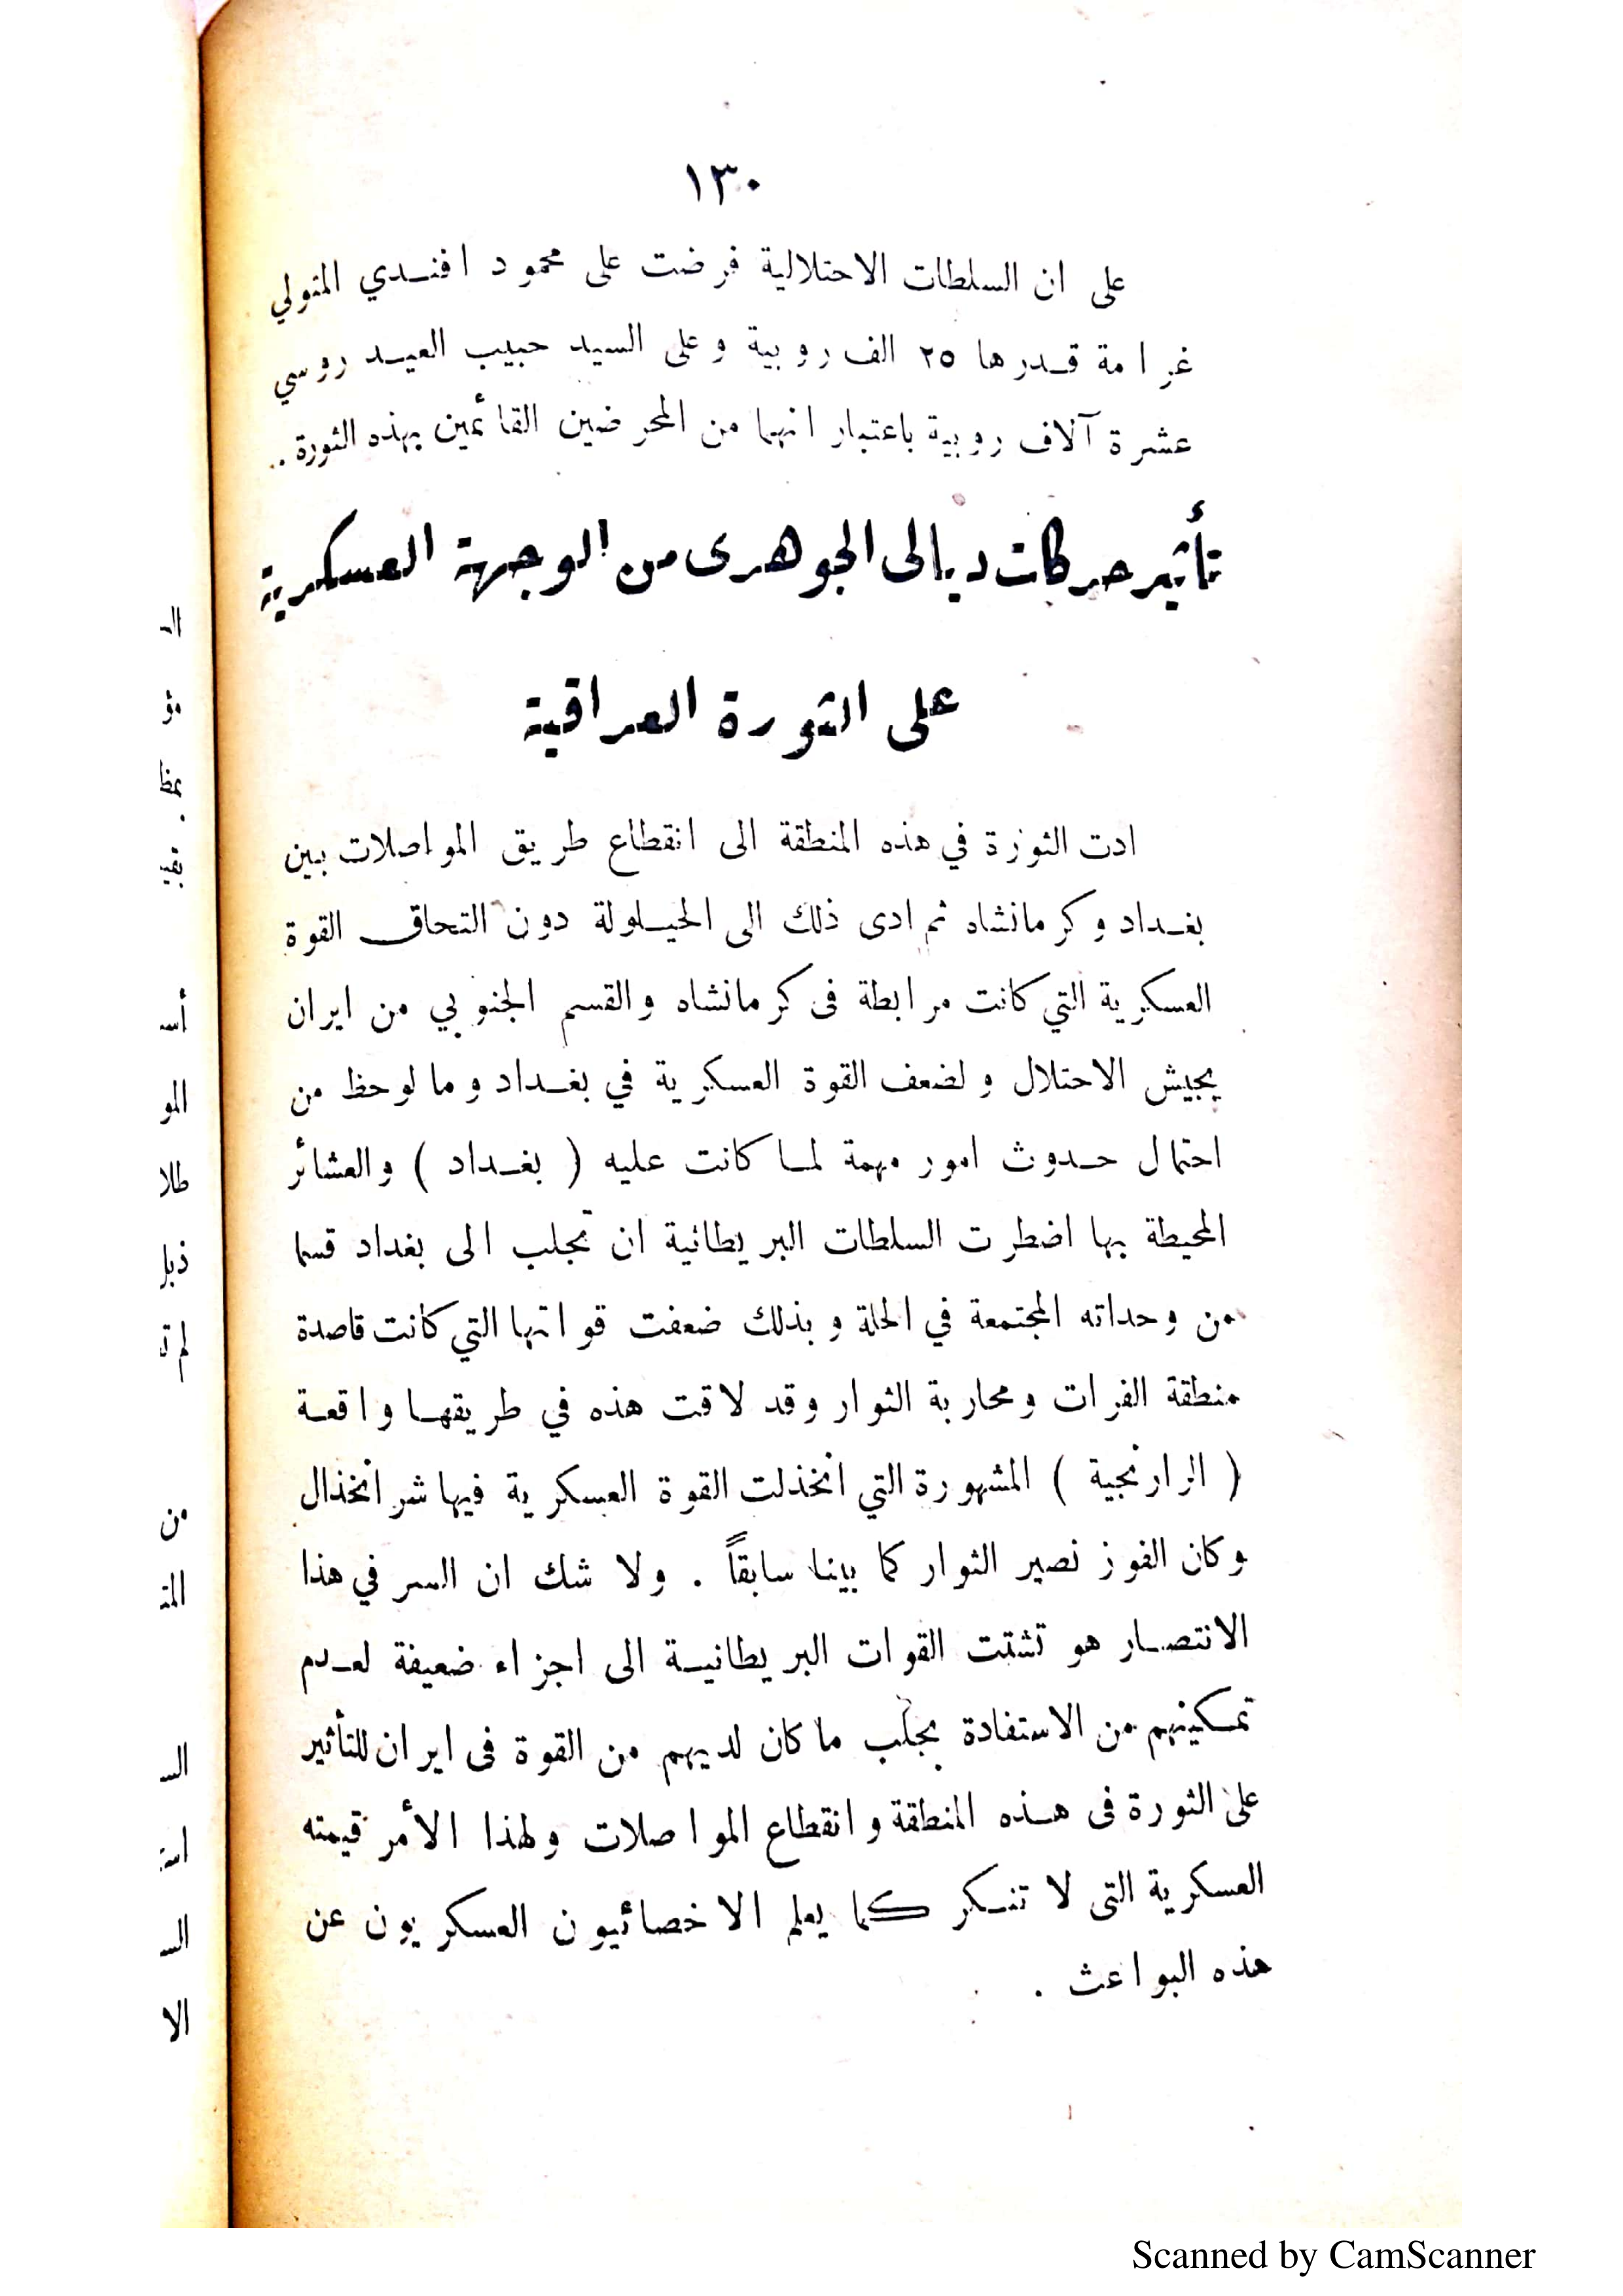 ١٣٠
على ان السلطات الاحتلالية فرضت على محمود افنــدي المتولي
غرامة قــدرها ٢٥ الف روبية وعلى السيد حبيب العيــد روسي
عشرة آلاف روبية باعتبار انهما من المحرضين القائمين بهذه الثورة .
تأثير حركات ديالى الجوهرى من الوجهة العسكرية
على الثورة العراقية
ادت الثوزة في هذه المنطقة الى انقطاع طريق المواصلات بين
بغــداد وكرمانشاه ثم ادى ذلك الى الحيــلولة دون التحاق القوة
العسكرية التي كانت مرابطة فى كرمانشاه والقسم الجنوبي من ايران
بجيش الاحتلال ولضعف القوة العسكرية في بغــداد وما لوحظ من
احتمال حــدوث امور مهمة لمــا كانت عليه ( بغــداد ) والعشائر
المحيطة بها اضطرت السلطات البريطانية ان تجلب الى بغداد قسما
من وحداته المجتمعة في الحلة وبذلك ضعفت قواتها التي كانت قاصدة
منطقة الفرات ومحاربة الثوار وقد لاقت هذه في طريقهــا واقعــة
( الرارنجية ) المشهورة التي انخذلت القوة العسكرية فيها شر انخذال
وكان الفوز نصير الثوار كما بينا سابقاً . ولا شك ان السر في هذا
الانتصــار هو تشتت القوات البريطانيــة الى اجزاء ضعيفة لعــدم
تمــكينهم من الاستفادة بجلب ما كان لديهم من القوة فى ايران للتأثير
على الثورة فى هــذه المنطقة وانقطاع المواصلات ولهذا الأمر قيمته
العسكرية التى لا تنــكر كــما يعلم الاخصائيون العسكريون عن
هذه البواعث .
Scanned by CamScanner